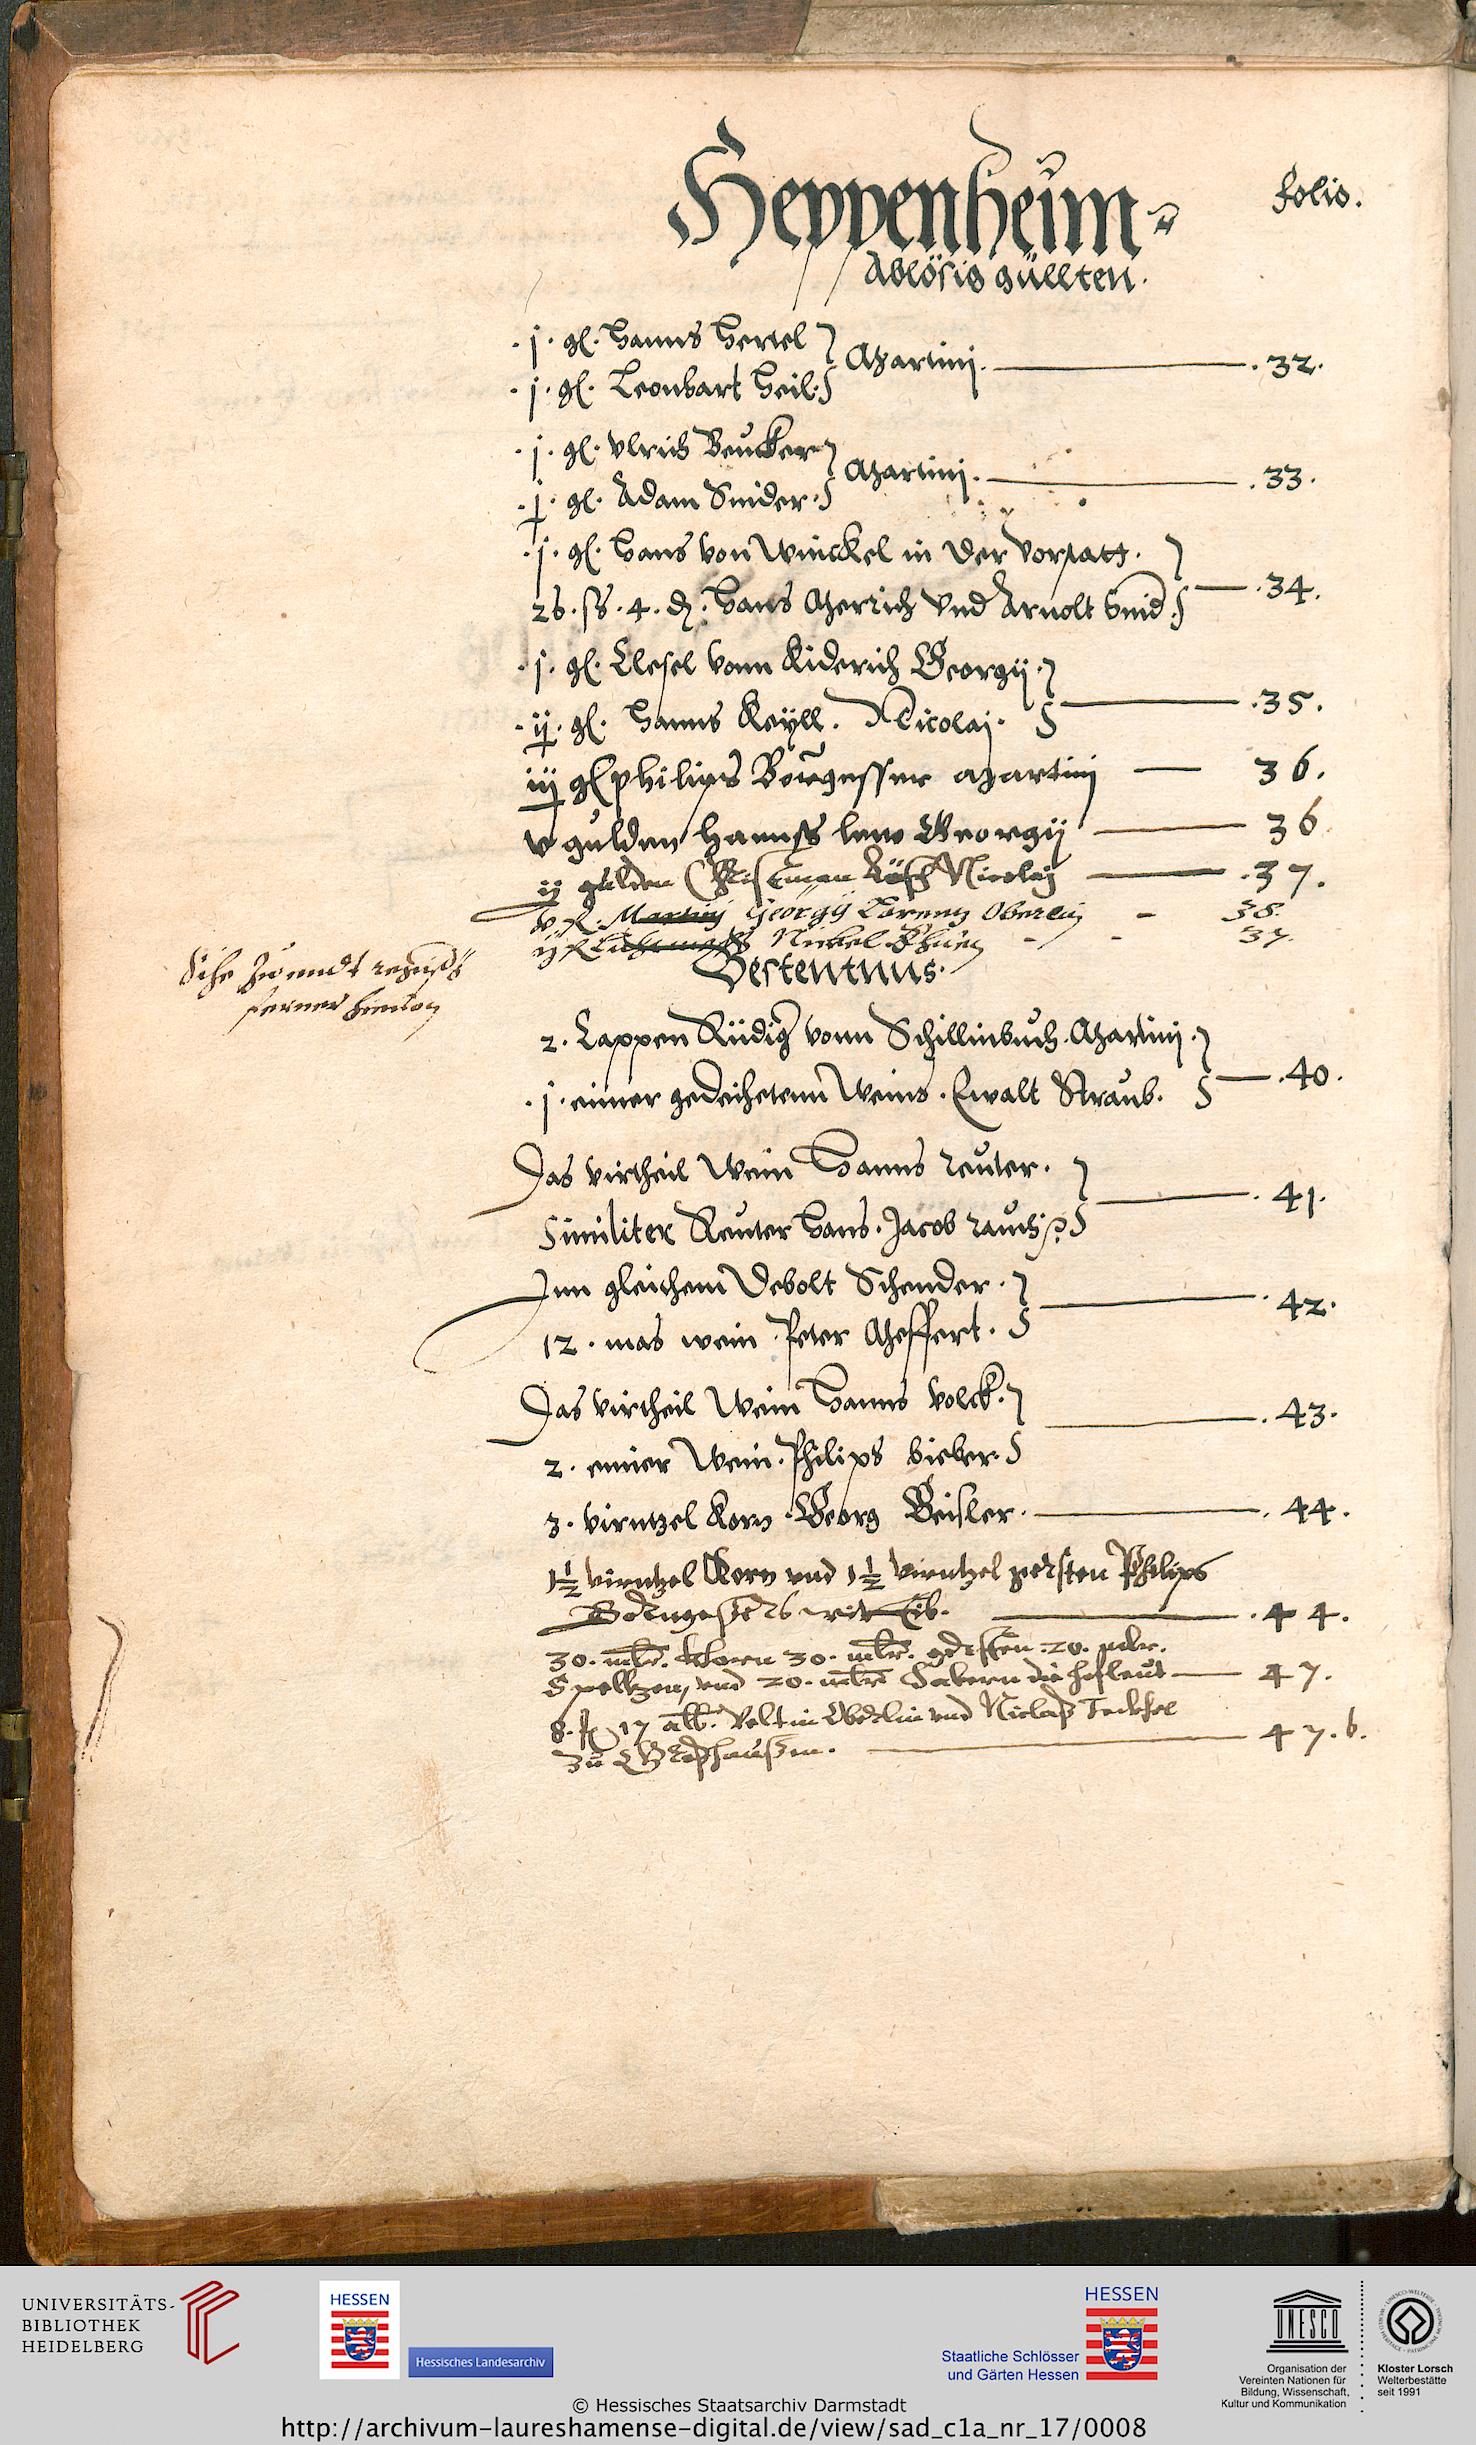 Heppenheim
folio.
Ablösig güllten.
.j. gl. Hanns Hertel
Martini. .32.
.j. gl. Leonhart Heil.
.j. gl. Ulrich Beucker
Martini. .33.
.j. gl. Adam Snider.
.j. gl. Hans von Winckel in der Vorstatt.
.34.
26. ß. 4. d. Hans Metzich und Arnolt Smid.
.j. gl. Clesel vonn Kiderich Georgij.
.35.
.ij. gl. Hanns Keyll. Nicolaj.
iij gl philips Bergesser martini 36.
v gulden Hannß lew Georgij 36
ij gulden Nicolaj .37.
v fl. Martinj Georgij Lorentz Oberlin 38.
ij fl Nickel 37.
Bestentnus.
Sihe zu endt
ferner hieuon
2. Cappen Rüdiger vonn Schillinbuch. Martinj.
.40.
.j. eimer gedeihetenn Weins. Ewalt Straub.
Das virtheil Wein Hanns reuter.
.41.
Similiter Reuter Hans. Jacob rauch
Inn gleichem Debolt Schender.
42.
12. mas wein Peter Meffert.
Das virtheil Wein Hanns Volck.
.43.
2. eimer Wein. Philips bieber.
3. virntzel Korn. Georg Geisler. .44.
1½ virntzel Korn und 1½ virntzel gersten Philips
.44.
30. mlr. Korn 30. mlr. gersten .20. mlr.
Speltzen, und 20. mlr. Habern die hofleut 47.
8. fl 17 alb. Veltin Oberlin und Niclaß
zu 47.b.
UNIVERSITÄTS-
BIBLIOTHEK
HEIDELBERG
HESSEN
Hessisches Landesarchiv
HESSEN
Staatliche Schlösser
und Gärten Hessen
UNESCO
Organisation der
Vereinten Nationen für
Bildung, Wissenschaft,
Kultur und Kommunikation
Kloster Lorsch
Welterbestätte
seit 1991
© Hessisches Staatsarchiv Darmstadt
http://archivum-laureshamense-digital.de/view/sad_c1a_nr_17/0008